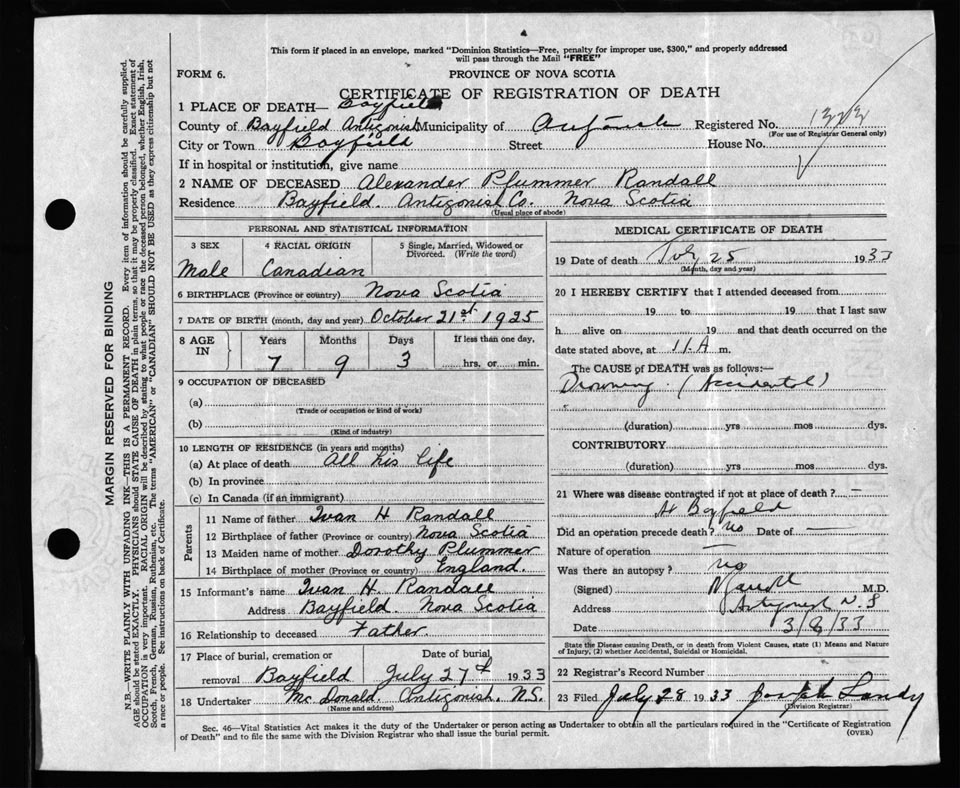 This form if placed in an envelope, marked "Dominion Statistics—Free, penalty for improper use, $300," and properly addressed
will pass through the Mail "FREE"
FORM 6.
PROVINCE OF NOVA SCOTIA
CERTIFICATE OF REGISTRATION OF DEATH
1 PLACE OF DEATH— Bayfield
County of Bayfield Antigonish Municipality of Antigonish Registered No. 1322
(For use of Registrar General only)
City or Town Bayfield Street House No.
If in hospital or institution, give name
2 NAME OF DECEASED Alexander Plummer Randall
Residence Bayfield. Antigonish Co. Nova Scotia
(Usual place of abode)
PERSONAL AND STATISTICAL INFORMATION
3 SEX 4 RACIAL ORIGIN 5 Single, Married, Widowed or Divorced. (Write the word)
Male Canadian
6 BIRTHPLACE (Province or country) Nova Scotia
7 DATE OF BIRTH (month, day and year) October 21st 1925
8 AGE IN Years Months Days If less than one day,
7 9 3 hrs. or min.
9 OCCUPATION OF DECEASED
(a)
(Trade or occupation or kind of work)
(b)
(Kind of industry)
10 LENGTH OF RESIDENCE (in years and months)
(a) At place of death All his life
(b) In province
(c) In Canada (if an immigrant)
Parents
11 Name of father Ivan H Randall
12 Birthplace of father (Province or country) Nova Scotia
13 Maiden name of mother Dorothy Plummer
14 Birthplace of mother (Province or country) England.
15 Informant's name Ivan H. Randall
Address Bayfield. Nova Scotia
16 Relationship to deceased Father.
17 Place of burial, cremation or removal Date of burial
Bayfield July 27th 1933
18 Undertaker McDonald. Antigonish. N.S.
(Name and address)
MEDICAL CERTIFICATE OF DEATH
19 Date of death July 25 1933
(Month, day and year)
20 I HEREBY CERTIFY that I attended deceased from
19 to 19 that I last saw
h alive on 19 and that death occurred on the
date stated above, at 11.A m.
The CAUSE of DEATH was as follows:—
Drowning. (Accidental)
(duration) yrs mos dys.
CONTRIBUTORY
(duration) yrs mos dys.
21 Where was disease contracted if not at place of death? —
At Bayfield
Did an operation precede death? no Date of
Nature of operation —
Was there an autopsy? no
(Signed) M.D.
Address Antigonish N.S
Date 3/8/33
State the Disease causing Death, or in death from Violent Causes, state (1) Means and Nature
of Injury, (2) whether Accidental, Suicidal or Homicidal.
22 Registrar's Record Number
23 Filed July 28 1933 Joseph Landy
(Division Registrar)
Sec. 46—Vital Statistics Act makes it the duty of the Undertaker or person acting as Undertaker to obtain all the particulars required in the "Certificate of Registration
of Death" and to file the same with the Division Registrar who shall issue the burial permit.
(OVER)
MARGIN RESERVED FOR BINDING
N.B.—WRITE PLAINLY WITH UNFADING INK—THIS IS A PERMANENT RECORD. Every item of information should be carefully supplied.
AGE should be stated EXACTLY. PHYSICIANS should STATE CAUSE OF DEATH in plain terms, so that it may be properly classified. Exact statement of
OCCUPATION is very important. RACIAL ORIGIN will be described by stating to what people or race the deceased person belonged, whether English, Irish,
Scotch, French, German, Russian, Ruthenian, etc. The terms "AMERICAN" or "CANADIAN" SHOULD NOT BE USED as they express citizenship but not
a race or people. See instructions on back of Certificate.